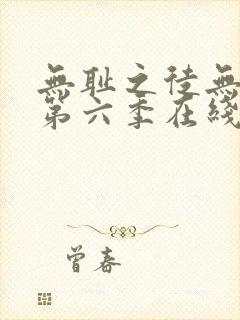 無耻之徒無
第六季在綫
曾春